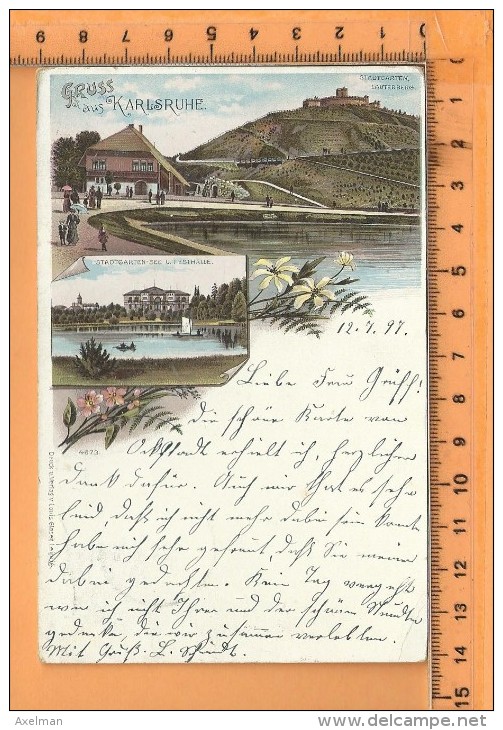 0 1 2 3 4 5 6 7 8 9
0 1 2 3 4 5 6 7 8 9 10 11 12 13 14 15
GRUSS
aus KARLSRUHE.
STADTGARTEN,
LAUTERBERG.
STADTGARTEN-SEE U. FESTHALLE.
4673.
12.7.97.
Liebe Frau Gräff!
die schöne Karte von
erhielt ich, herzlichen
dank dafür. Auch mir that es sehr
leid, daß ich nicht mehr dabei sein konnte
habe mich sehr gefreut, daß Sie meiner
dabei gedachten. Kein Tag vergeht
wo ich nicht Ihrer und der schönen Stunden
gedenke, die wir zusammen verlebten.
Mit Gruß. L. Schmidt.
Druck u. Verlag v. Louis Glaser
Axelman
www.delcampe.net